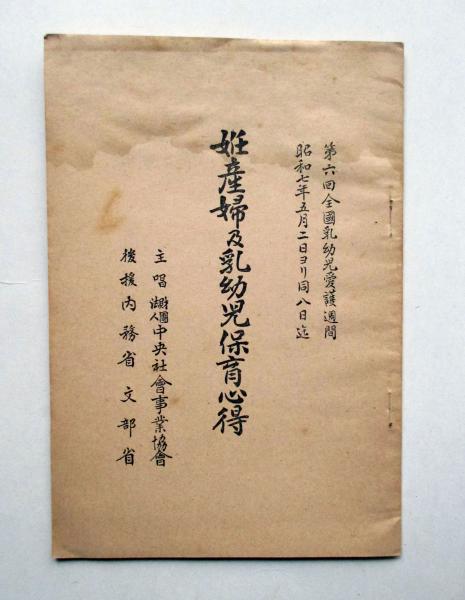 第六回全國乳幼児愛護週間
昭和七年五月二日ヨリ同八日迄
姙産婦及乳幼児保育心得
主唱 財團法人中央社會事業協會
後援内務省文部省